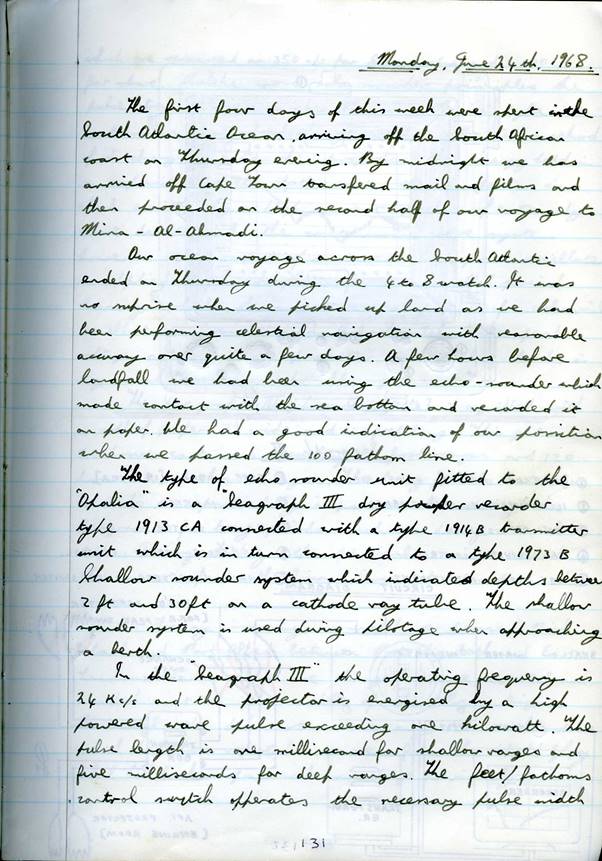 Monday, June 24th, 1968.
The first four days of this week were spent in the
South Atlantic Ocean, arriving off the South African
coast on Thursday evening. By midnight we has
arrived off Cape Town transfered mail and films and
then proceeded on the second half of our voyage to
Mina - Al-Ahmadi.
Our ocean voyage across the South Atlantic
ended on Thursday during the 4 to 8 watch. It was
no suprise when we picked up land as we had
been performing celestial navigation with reasonable
accuracy over quite a few days. A few hours before
landfall we had been using the echo-sounder which
made contact with the sea bottom and recorded it
on paper. We had a good indication of our possition
when we passed the 100 fathom line.
The type of echo sounder unit fitted to the
"Opalia" is a "Seagraph III dry paper recorder
type 1913 CA connected with a type 1914B transmitter
unit which is in turn connected to a type 1973 B
Shallow sounder system which indicated depths between
2 ft and 30ft on a cathode ray tube. The shallow
sounder system is used during pilotage when approaching
a berth.
In the "Seagraph III" the operating frequency is
24 Kc/s and the projector is energised by a high
powered wave pulse exceeding one kilowatt. The
pulse length is one millisecond for shallow ranges and
five milliseconds for deep ranges. The feet/fathoms
control switch operates the necessary pulse width
131